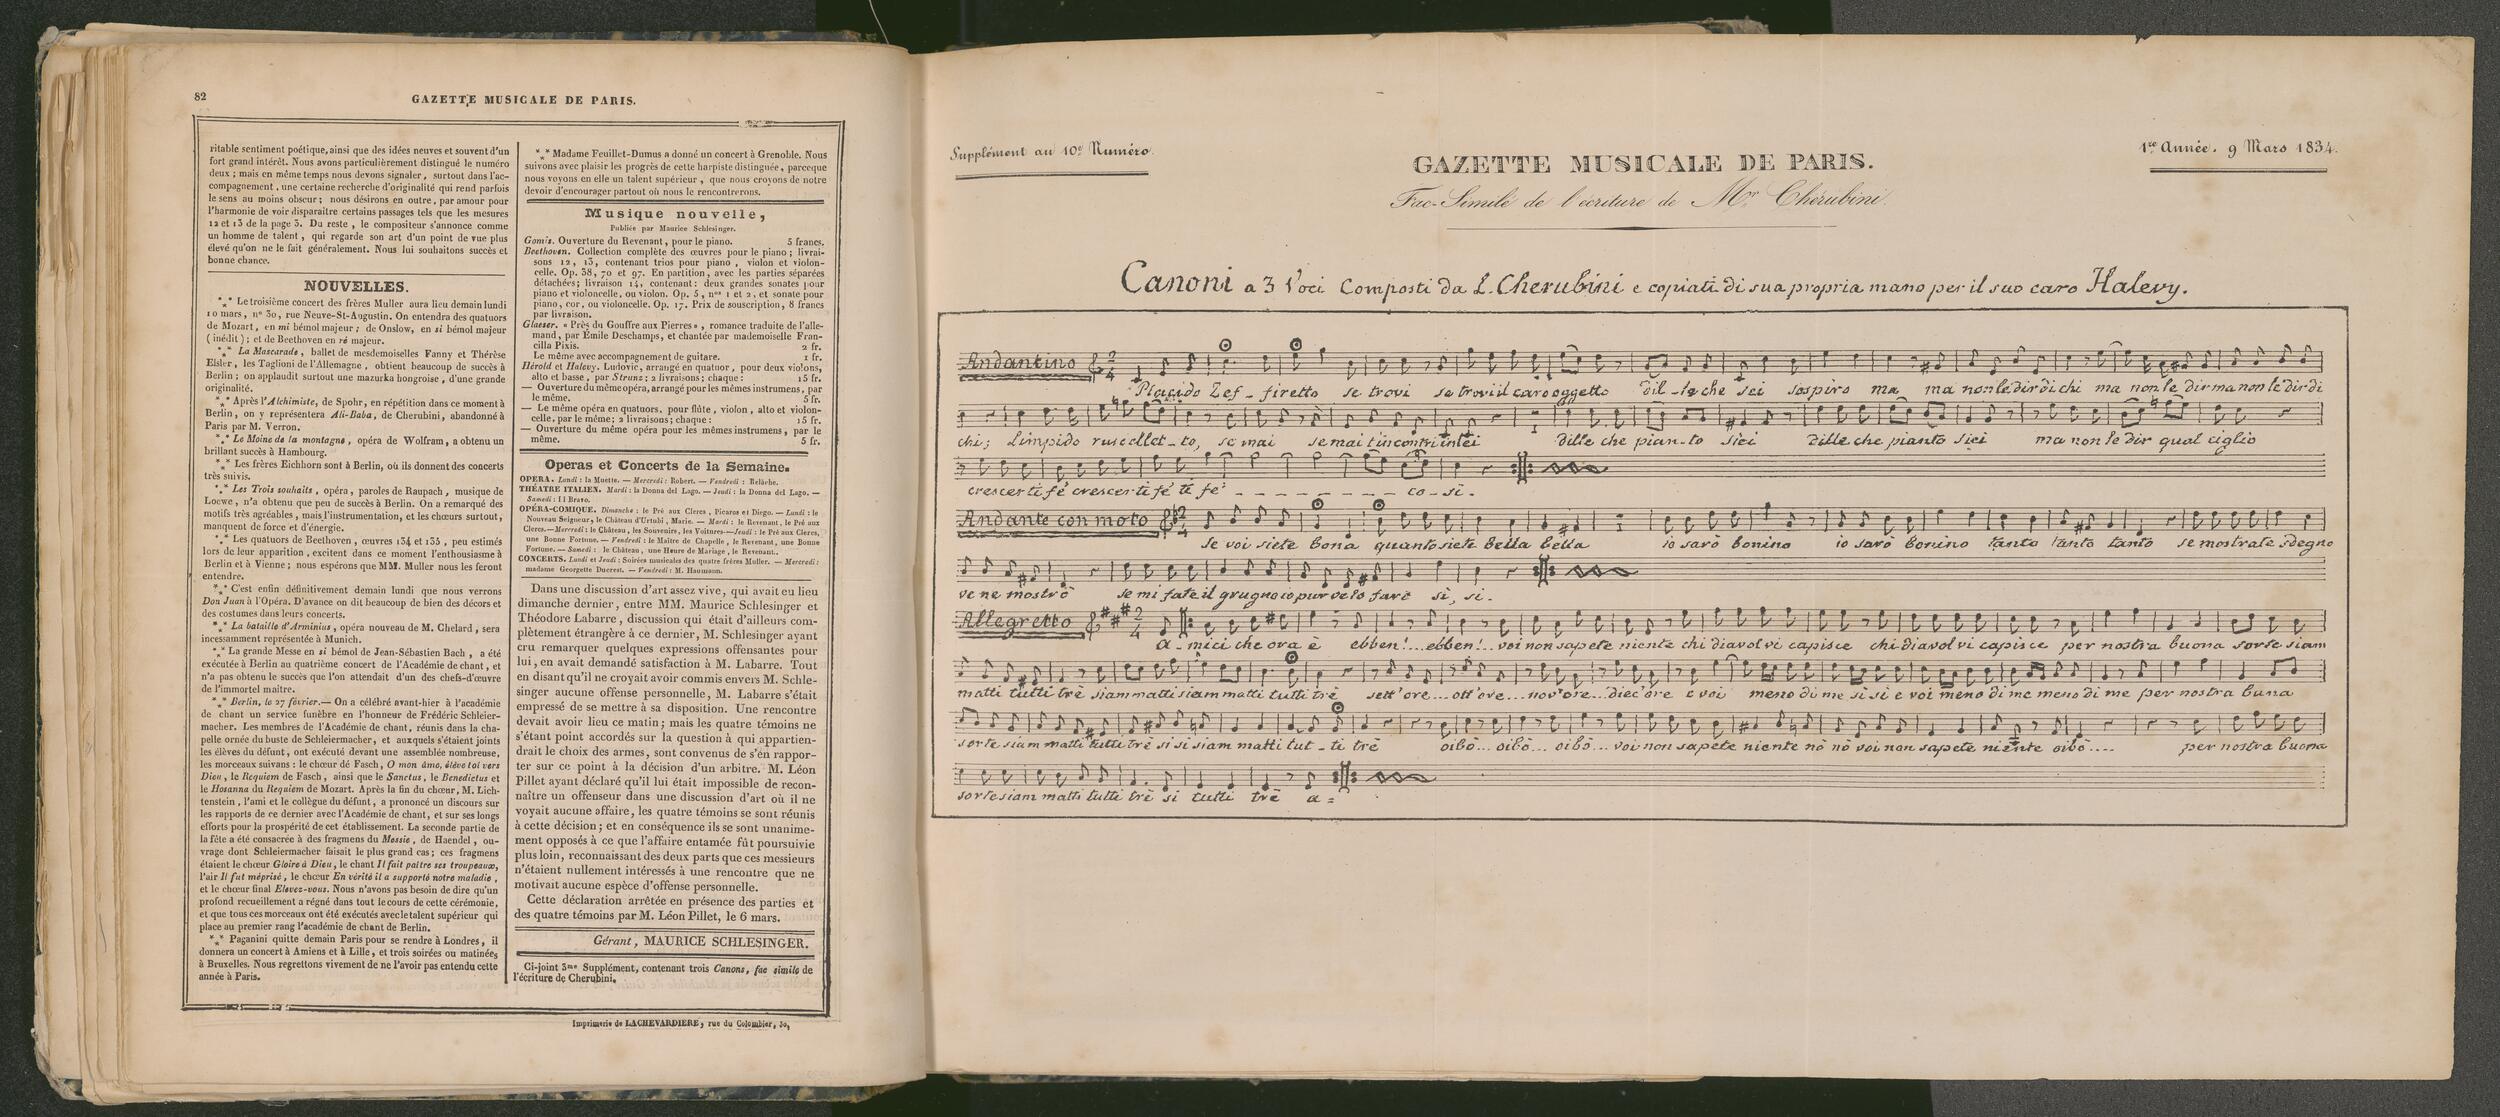 82
GAZETTE MUSICALE DE PARIS.
ritable sentiment poétique, ainsi que des idées neuves et souvent d'un
fort grand intérêt. Nous avons particulièrement distingué le numéro
deux ; mais en même temps nous devons signaler, surtout dans l'ac-
compagnement, une certaine recherche d'originalité qui rend parfois
le sens au moins obscur ; nous désirons en outre, par amour pour
l'harmonie de voir disparaître certains passages tels que les mesures
12 et 13 de la page 3. Du reste, le compositeur s'annonce comme
un homme de talent, qui regarde son art d'un point de vue plus
élevé qu'on ne le fait généralement. Nous lui souhaitons succès et
bonne chance.
NOUVELLES.
*** Le troisième concert des frères Muller aura lieu demain lundi
10 mars, n° 30, rue Neuve-St-Augustin. On entendra des quatuors
de Mozart, en mi bémol majeur ; de Onslow, en si bémol majeur
(inédit) ; et de Beethoven en ré majeur.
*** La Mascarade, ballet de mesdemoiselles Fanny et Thérèse
Elsler, les Taglioni de l'Allemagne, obtient beaucoup de succès à
Berlin ; on applaudit surtout une mazurka hongroise, d'une grande
originalité.
*** Après l'Alchimiste, de Spohr, en répétition dans ce moment à
Berlin, on y représentera Ali-Baba, de Cherubini, abandonné à
Paris par M. Verron.
*** Le Moine de la montagne, opéra de Wolfram, a obtenu un
brillant succès à Hambourg.
*** Les frères Eichhorn sont à Berlin, où ils donnent des concerts
très suivis.
*** Les Trois souhaits, opéra, paroles de Raupach, musique de
Loewe, n'a obtenu que peu de succès à Berlin. On a remarqué des
motifs très agréables, mais l'instrumentation, et les chœurs surtout,
manquent de force et d'énergie.
*** Les quatuors de Beethoven, œuvres 134 et 135, peu estimés
lors de leur apparition, excitent dans ce moment l'enthousiasme à
Berlin et à Vienne ; nous espérons que MM. Muller nous les feront
entendre.
*** C'est enfin définitivement demain lundi que nous verrons
Don Juan à l'Opéra. D'avance on dit beaucoup de bien des décors et
des costumes dans leurs concerts.
*** La bataille d'Arminius, opéra nouveau de M. Chelard, sera
incessamment représentée à Munich.
*** La grande Messe en si bémol de Jean-Sébastien Bach, a été
exécutée à Berlin au quatrième concert de l'Académie de chant, et
n'a pas obtenu le succès que l'on attendait d'un des chefs-d'œuvre
de l'immortel maître.
*** Berlin, le 27 février.— On a célébré avant-hier à l'académie
de chant un service funèbre en l'honneur de Frédéric Schleier-
macher. Les membres de l'Académie de chant, réunis dans la cha-
pelle ornée du buste de Schleiermacher, et auxquels s'étaient joints
les élèves du défunt, ont exécuté devant une assemblée nombreuse,
les morceaux suivans : le chœur de Fasch, O mon âme, élève toi vers
Dieu, le Requiem de Fasch, ainsi que le Sanctus, le Benedictus et
le Hosanna du Requiem de Mozart. Après la fin du chœur, M. Lich-
tenstein, l'ami et le collègue du défunt, a prononcé un discours sur
les rapports de ce dernier avec l'Académie de chant, et sur ses longs
efforts pour la prospérité de cet établissement. La seconde partie de
la fête a été consacrée à des fragmens du Messie, de Haendel, ou-
vrage dont Schleiermacher faisait le plus grand cas ; ces fragmens
étaient le chœur Gloire à Dieu, le chant Il fait paître ses troupeaux,
l'air Il fut méprisé, le chœur En vérité il a supporté notre maladie,
et le chœur final Elevez-vous. Nous n'avons pas besoin de dire qu'un
profond recueillement a régné dans tout le cours de cette cérémonie,
et que tous ces morceaux ont été exécutés avec le talent supérieur qui
place au premier rang l'académie de chant de Berlin.
*** Paganini quitte demain Paris pour se rendre à Londres, il
donnera un concert à Amiens et à Lille, et trois soirées ou matinées
à Bruxelles. Nous regrettons vivement de ne l'avoir pas entendu cette
année à Paris.
*** Madame Feuillet-Dumus a donné un concert à Grenoble. Nous
suivons avec plaisir les progrès de cette harpiste distinguée, parceque
nous voyons en elle un talent supérieur, que nous croyons de notre
devoir d'encourager partout où nous le rencontrerons.
Musique nouvelle,
Publiée par Maurice Schlesinger.
Gomis. Ouverture du Revenant, pour le piano. 5 francs.
Beethoven. Collection complète des œuvres pour le piano ; livrai-
sons 12, 13, contenant trios pour piano, violon et violon-
celle. Op. 38, 70 et 97. En partition, avec les parties séparées
détachées ; livraison 14, contenant : deux grandes sonates pour
piano et violoncelle, ou violon. Op. 5, nos 1 et 2, et sonate pour
piano, cor, ou violoncelle. Op. 17. Prix de souscription, 8 francs
par livraison.
Glaeser. « Près du Gouffre aux Pierres », romance traduite de l'alle-
mand, par Émile Deschamps, et chantée par mademoiselle Fran-
cilla Pixis. 2 fr.
Le même avec accompagnement de guitare. 1 fr.
Hérold et Halevy. Ludovic, arrangé en quatuor, pour deux violons,
alto et basse, par Strunz ; 2 livraisons ; chaque : 15 fr.
— Ouverture du même opéra, arrangé pour les mêmes instrumens, par
le même. 5 fr.
— Le même opéra en quatuors, pour flûte, violon, alto et violon-
celle, par le même ; 2 livraisons ; chaque : 15 fr.
— Ouverture du même opéra pour les mêmes instrumens, par le
même. 5 fr.
Operas et Concerts de la Semaine.
OPERA. Lundi : la Muette. — Mercredi : Robert. — Vendredi : Relâche.
THÉATRE ITALIEN. Mardi : la Donna del Lago. — Jeudi : la Donna del Lago. —
Samedi : Il Bravo.
OPÉRA-COMIQUE. Dimanche : le Pré aux Clercs, Picaros et Diego. — Lundi : le
Nouveau Seigneur, le Château d'Urtubi, Marie. — Mardi : le Revenant, le Pré aux
Clercs.—Mercredi : le Château, les Souvenirs, les Voitures.—Jeudi : le Pré aux Clercs,
une Bonne Fortune. — Vendredi : le Maître de Chapelle, le Revenant, une Bonne
Fortune. — Samedi : le Château, une Heure de Mariage, le Revenant.
CONCERTS. Lundi et Jeudi : Soirées musicales des quatre frères Muller. — Mercredi :
madame Georgette Ducrest. — Vendredi : M. Haumann.
Dans une discussion d'art assez vive, qui avait eu lieu
dimanche dernier, entre MM. Maurice Schlesinger et
Théodore Labarre, discussion qui était d'ailleurs com-
plètement étrangère à ce dernier, M. Schlesinger ayant
cru remarquer quelques expressions offensantes pour
lui, en avait demandé satisfaction à M. Labarre. Tout
en disant qu'il ne croyait avoir commis envers M. Schle-
singer aucune offense personnelle, M. Labarre s'était
empressé de se mettre à sa disposition. Une rencontre
devait avoir lieu ce matin ; mais les quatre témoins ne
s'étant point accordés sur la question à qui appartien-
drait le choix des armes, sont convenus de s'en rappor-
ter sur ce point à la décision d'un arbitre. M. Léon
Pillet ayant déclaré qu'il lui était impossible de recon-
naître un offenseur dans une discussion d'art où il ne
voyait aucune affaire, les quatre témoins se sont réunis
à cette décision ; et en conséquence ils se sont unanime-
ment opposés à ce que l'affaire entamée fût poursuivie
plus loin, reconnaissant des deux parts que ces messieurs
n'étaient nullement intéressés à une rencontre que ne
motivait aucune espèce d'offense personnelle.
Cette déclaration arrêtée en présence des parties et
des quatre témoins par M. Léon Pillet, le 6 mars.
Gérant, MAURICE SCHLESINGER.
Ci-joint 3me Supplément, contenant trois Canons, fac simile de
l'écriture de Cherubini.
Imprimerie de LACHEVARDIERE, rue du Colombier, 30,
Supplément au 10e Numéro.
GAZETTE MUSICALE DE PARIS.
1re Année. 9 Mars 1834.
Fac-Simile de l'écriture de Mr Chérubini.
Canoni a 3 Voci Composti da L. Cherubini e copiati di sua propria mano per il suo caro Halevy.
Andantino
Placido Zef-firetto se trovi se trovi il caro oggetto dil-le che sei sospiro ma, ma non le dir di chi ma non le dir ma non le dir di
chi; Limpido ruscellet-to, se mai se mai t'incontri in lei dille che pian-to siei dille che pianto siei ma non le dir qual ciglio
crescer ti fé crescer ti fé ti fé - - - - - - - - co-si.
Andante con moto
Se voi siete bona quanto siete bella bella io sarò bonino io sarò bonino tanto tanto tanto se mostrate sdegno
ve ne mostrò se mi fate il grugno io pur ve lo farò sì, si.
Allegretto
A-mici che ora è ebben!... ebben!.. voi non sapete niente chi diavol vi capisce chi diavol vi capisce per nostra buona sorte siam
matti tutti trè siam matti siam matti tutti trè sett'ore.... ott'ore... nov'ore... diec'ore e voi meno di me si si e voi meno di me meno di me per nostra buna
sorte siam matti tutti trè si si siam matti tut-ti trè oibò... oibò... oibò... voi non sapete niente nò nò voi non sapete niente oibò.... per nostra buona
sorte siam matti tutti trè si tutti trè a=